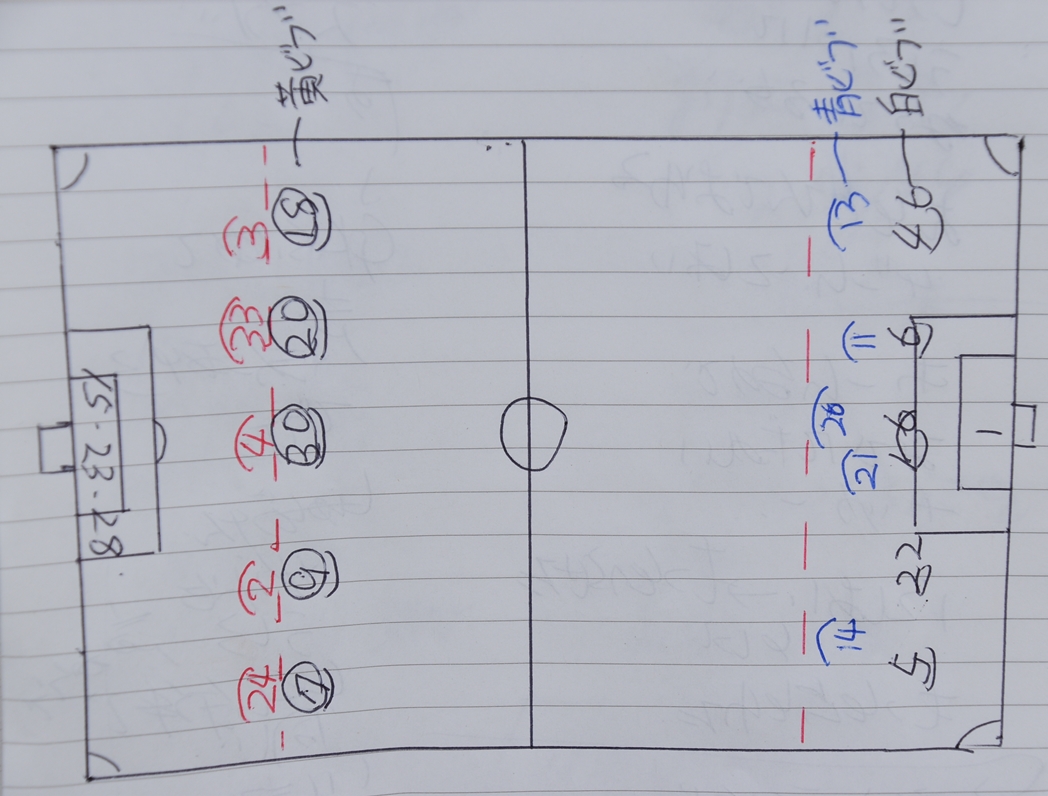 15・23・28
24 2 4 33 3
17 9 30 20 18 黄ビブ
14 21 11 13 青ビブ
5 22 6 46 白ビブ
1